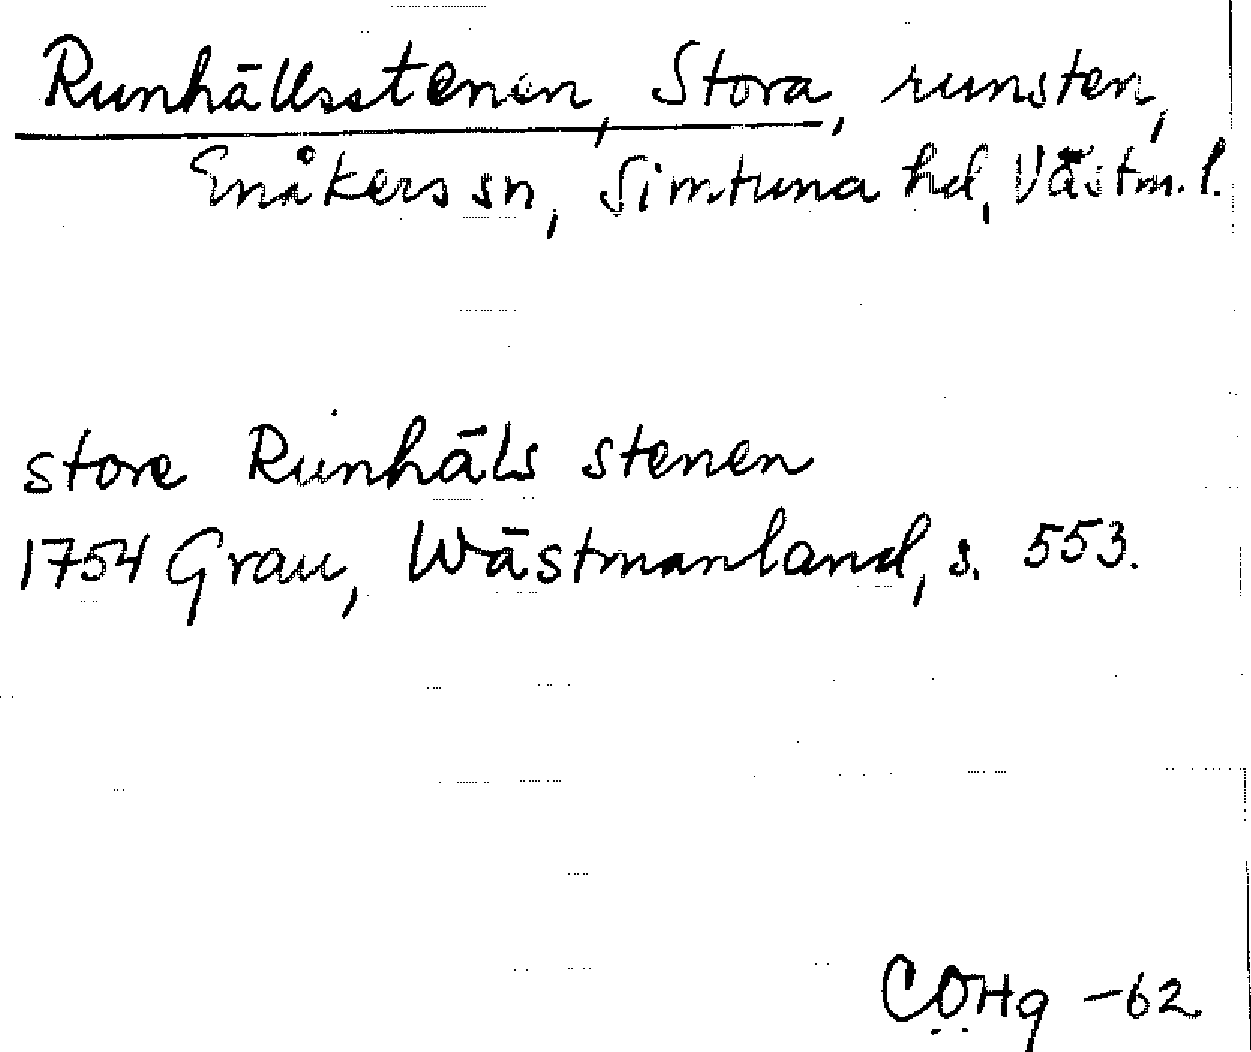 Runhällsstenen, Stora, runsten,
Enåkers sn, Simtuna hd, Västm. l.
store Runhäls stenen
1754 Grau, Wästmanland, s. 553.
COHg -62